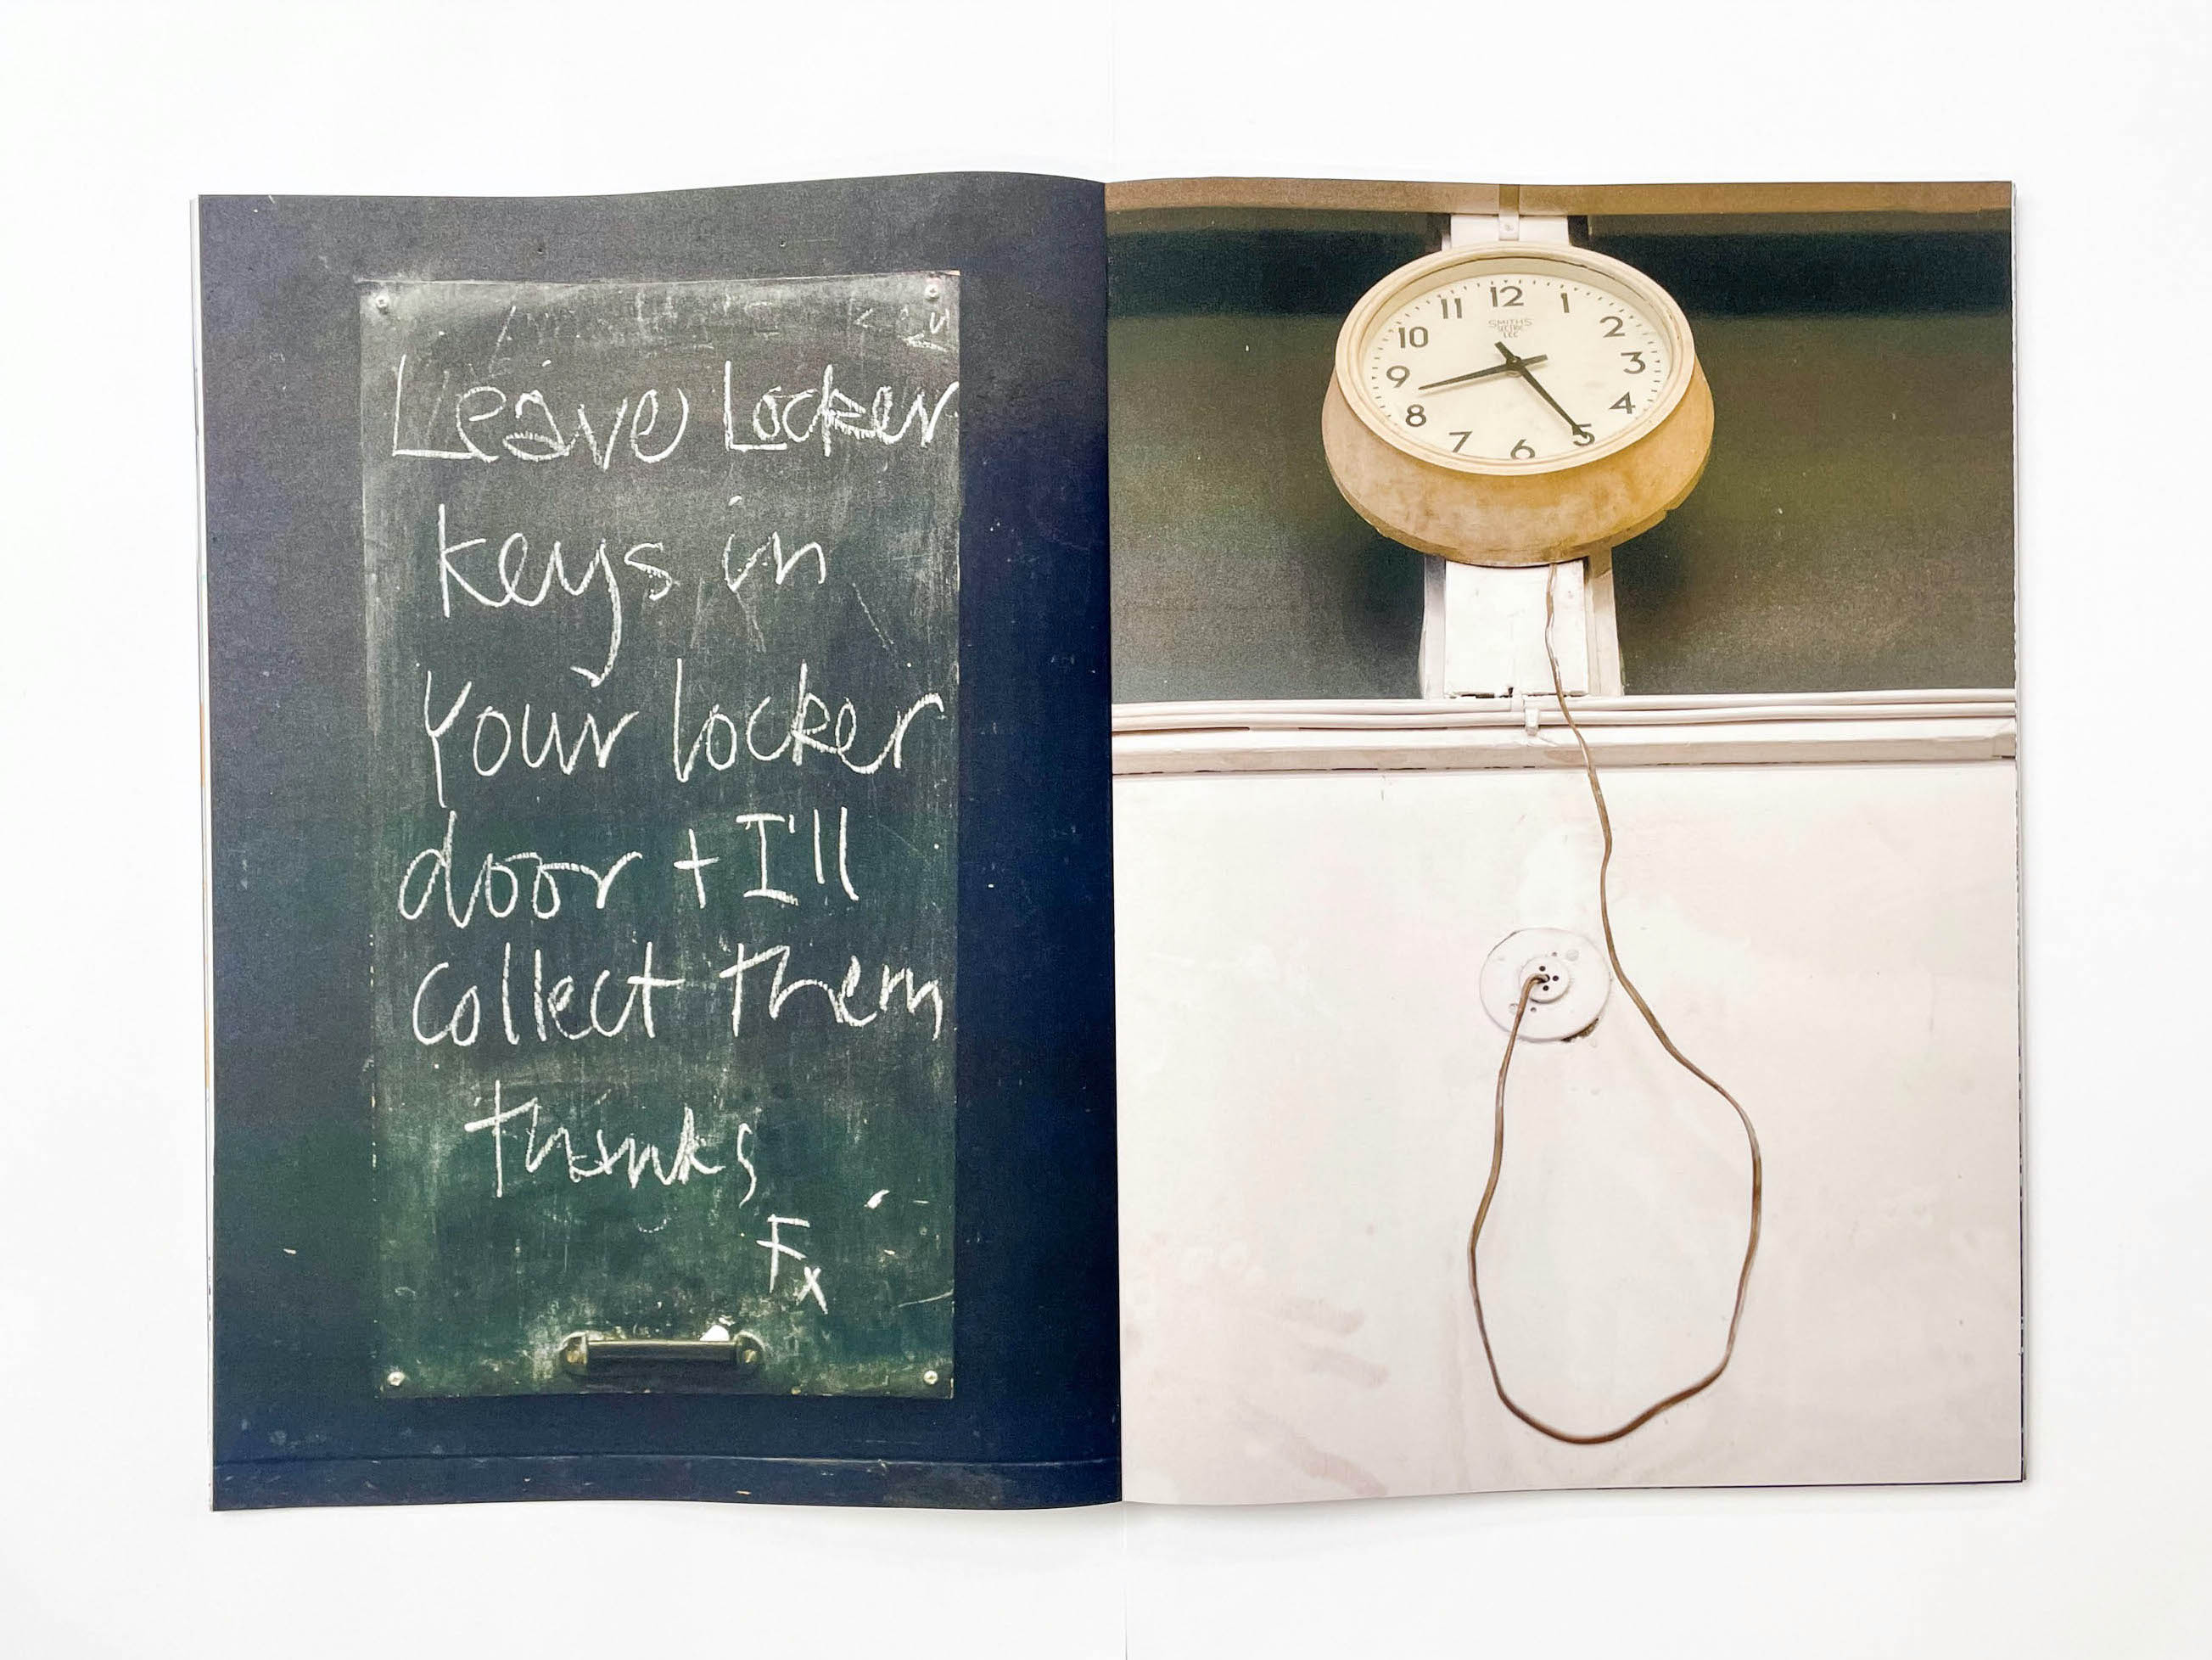 Leave Locker
keys in
your locker
door + I'll
collect them
thanks
Fx
12
1
2
3
4
5
6
7
8
9
10
11
SMITHS
SECTRIC